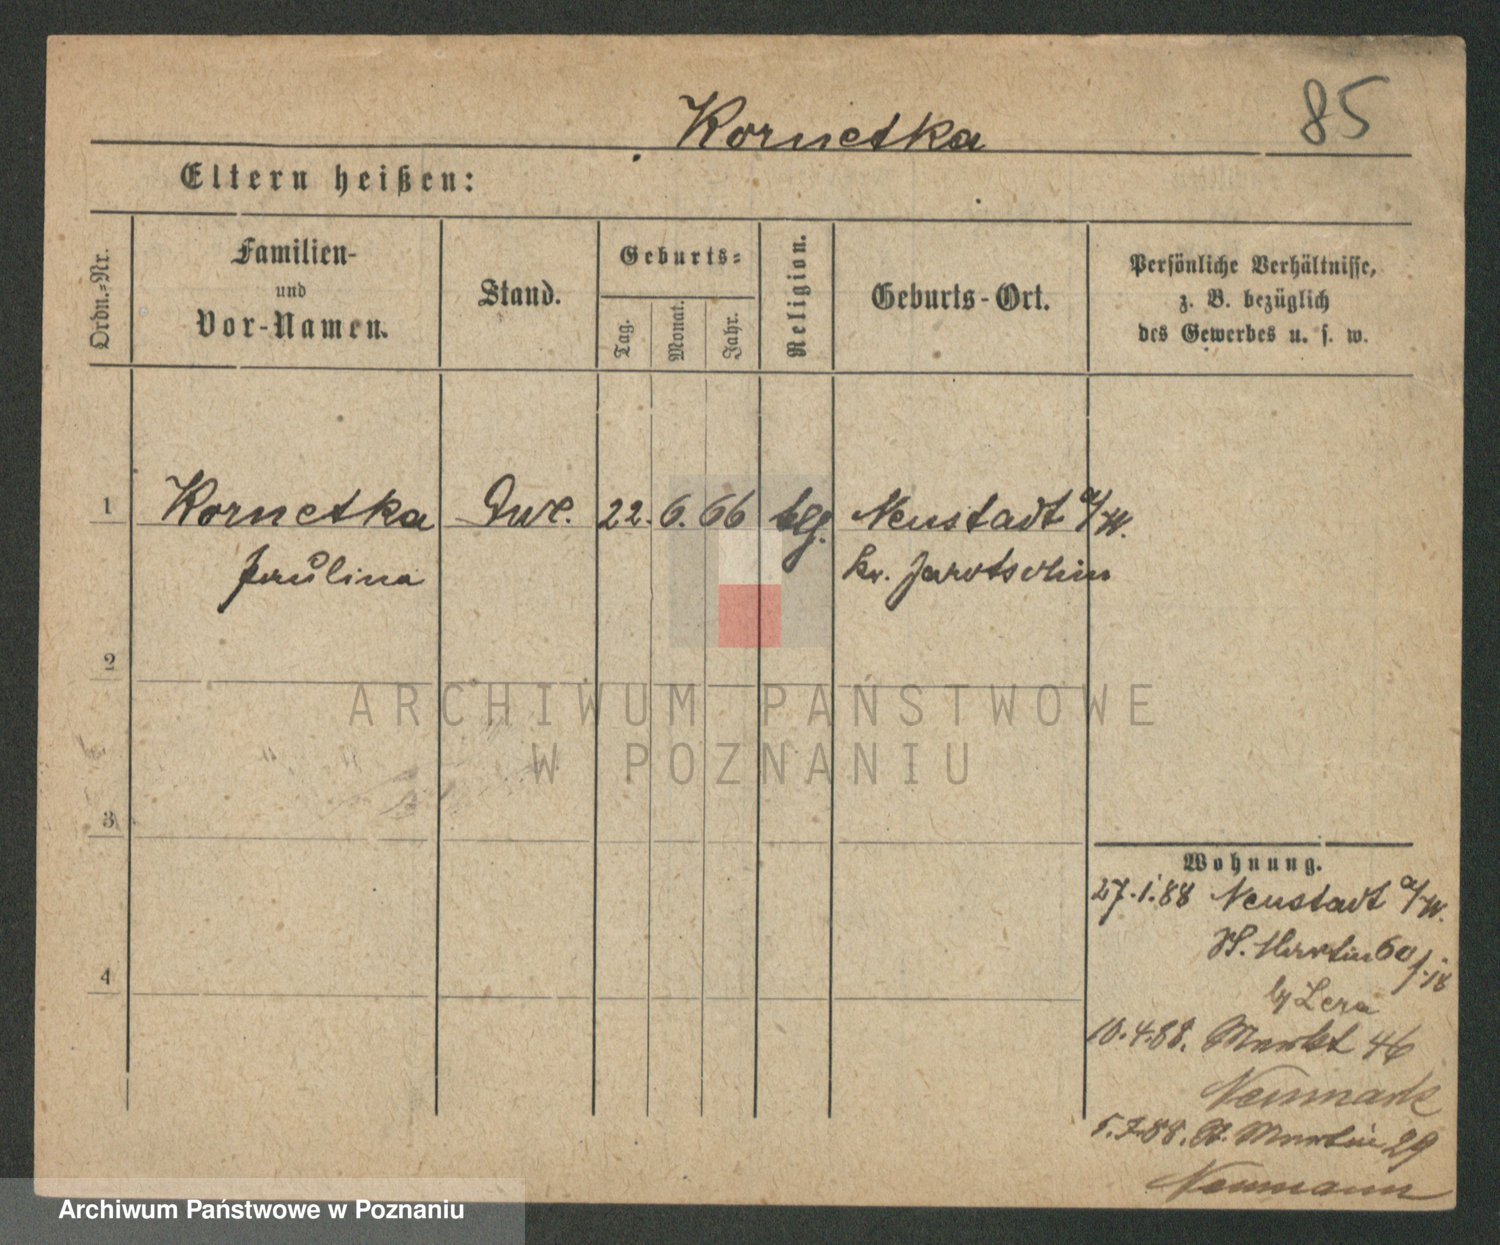 Kornetka
85
Eltern heißen:
Ordn.-Nr.
Familien-
und
Vor-Namen.
Stand.
Geburts-
Tag.
Monat.
Jahr.
Religion.
Geburts-Ort.
Persönliche Verhältnisse,
z. B. bezüglich
des Gewerbes u. s. w.
1 Kornetka 22. 6. 66 Neustadt a/W.
Paulina Kr. Jarotschin
2
3
4
ARCHIWUM PAŃSTWOWE
W POZNANIU
Wohnung.
27.1.88 Neustadt a/W.
St. Martin 60
Lera
10.4.88. Markt 46
Neumark
5.7.88. St. Martin 29
Neumann
Archiwum Państwowe w Poznaniu